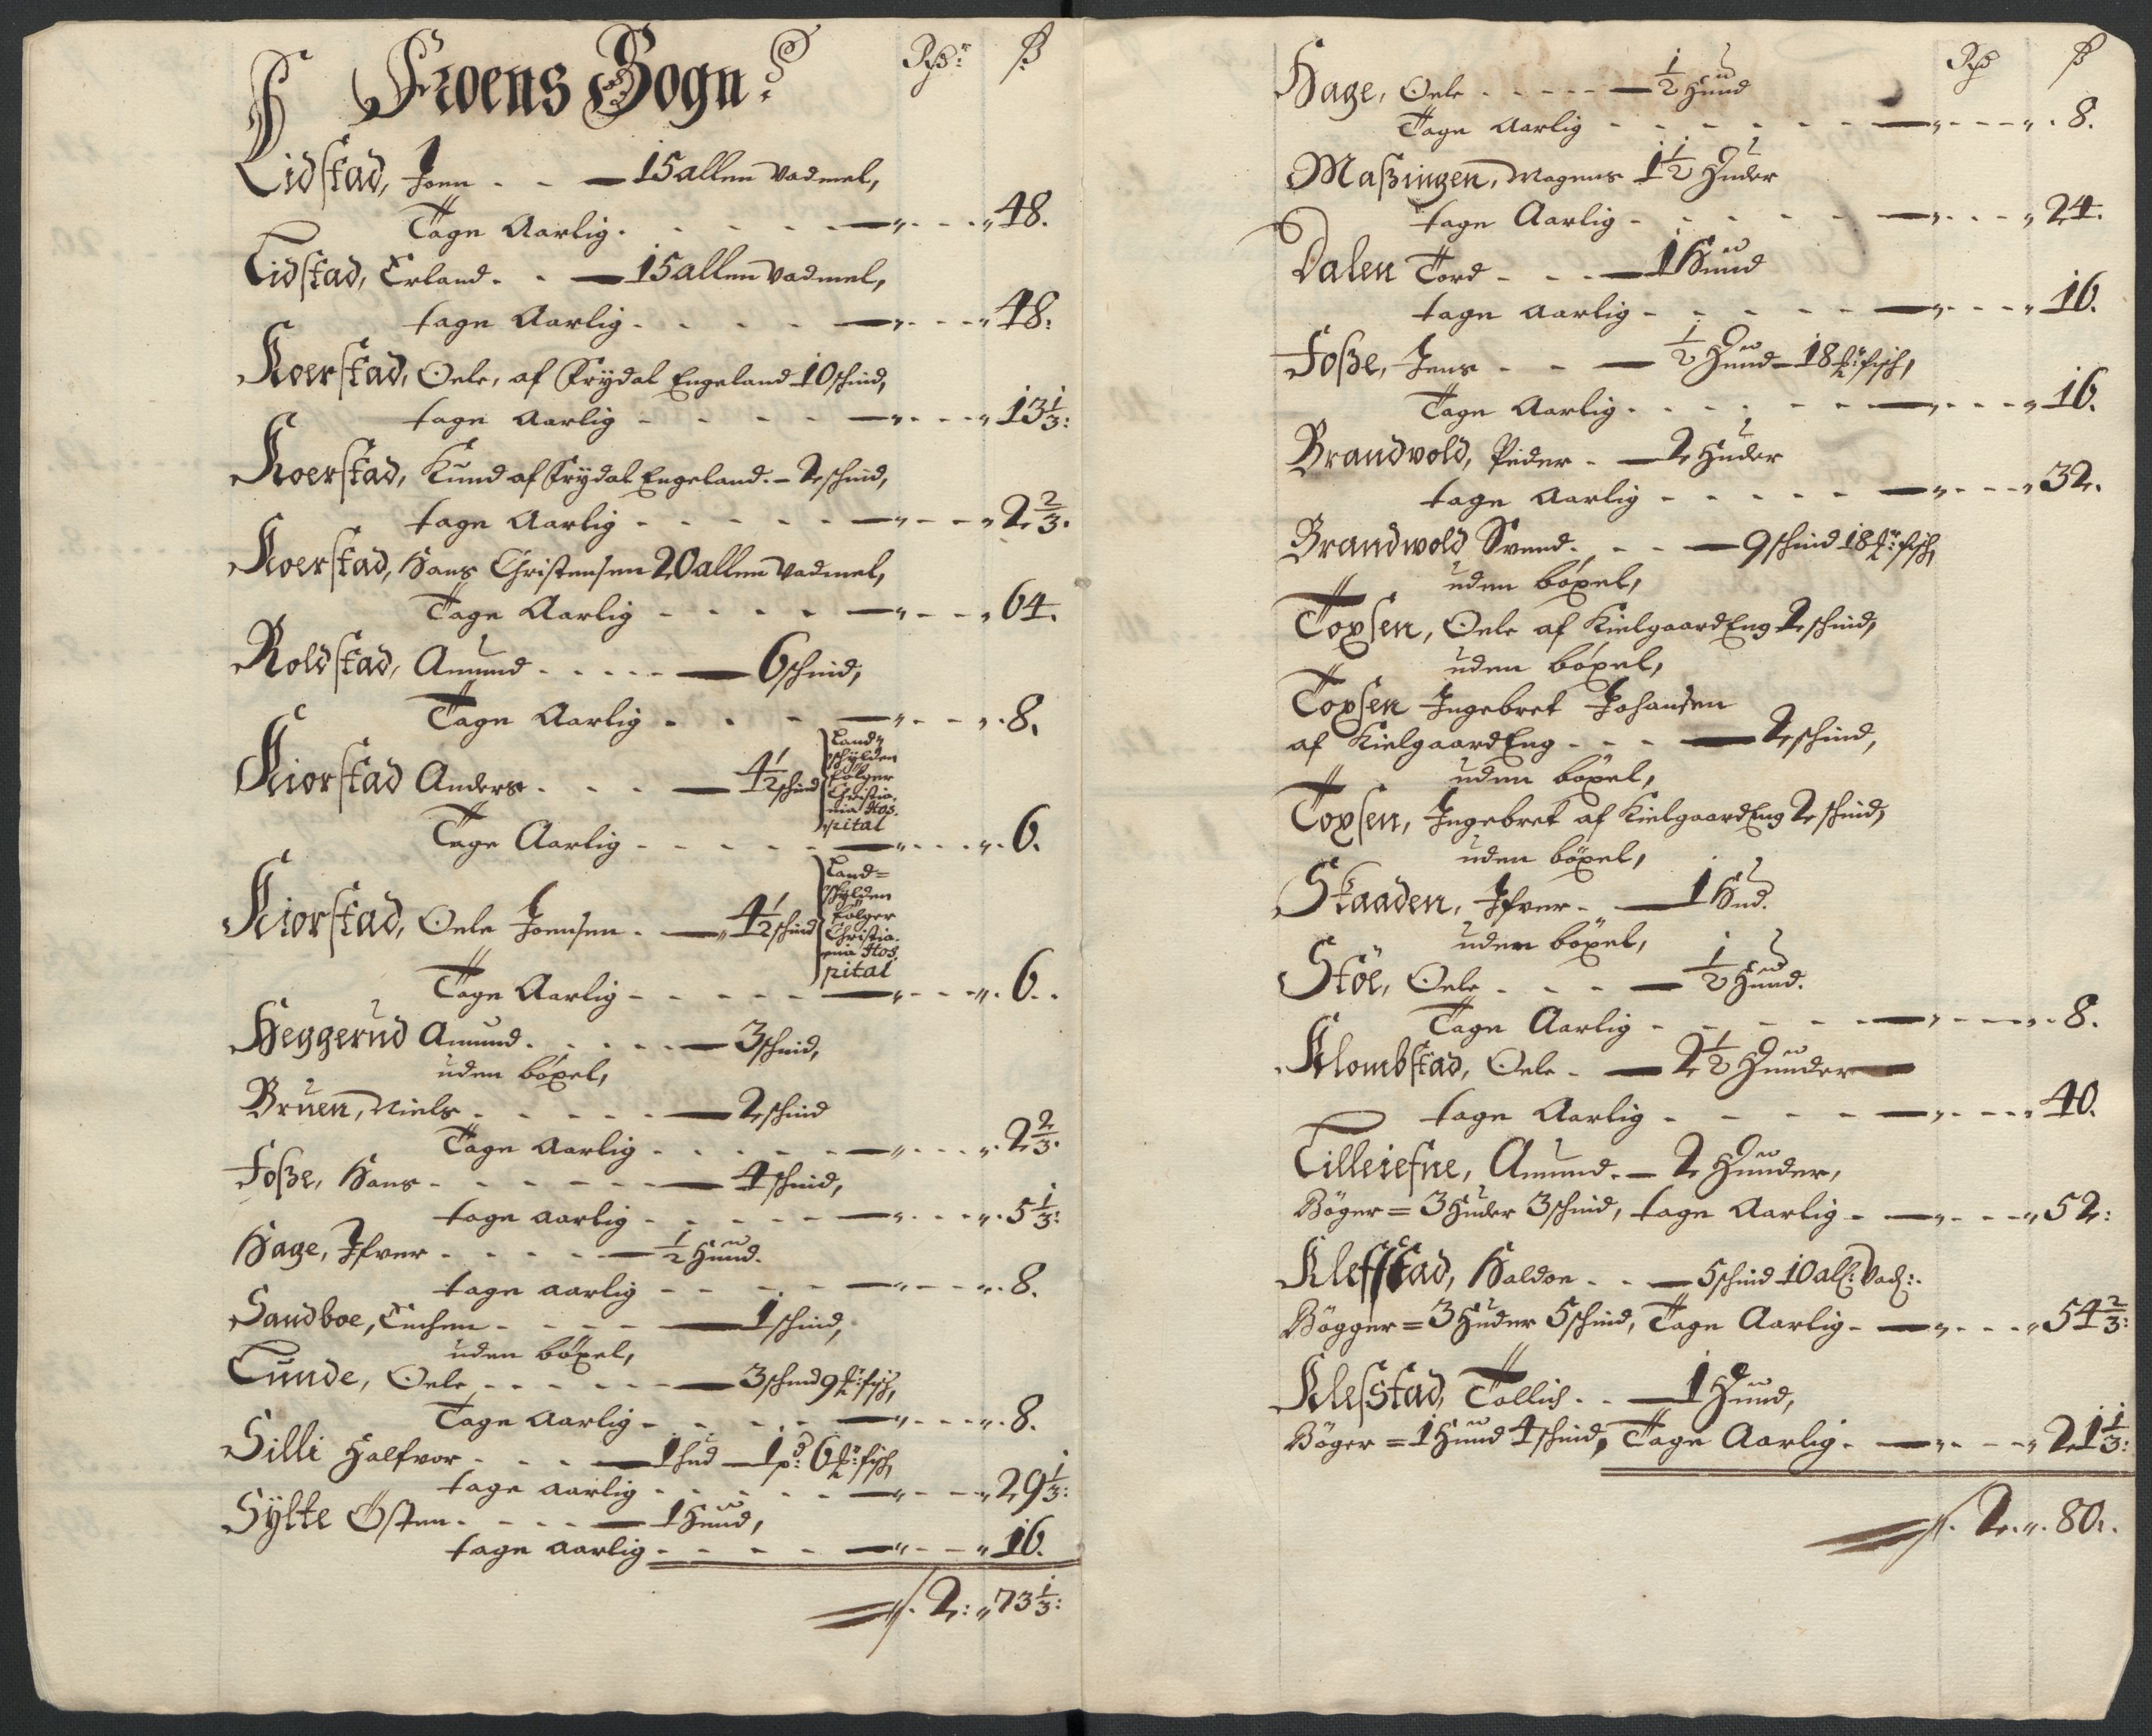 Froens Sogn
Rdr: ß
Lidstad, Joen - - 15 allen vadmel,
Tage Aarlig - - - 48.
Lidstad, Erland - - 15 allen vadmel,
tage Aarlig - - - 48:
Koerstad, Oele, af Frydal Engeland 10 schind,
tage Aarlig - - - 13 1/3:
Koerstad, Knud af Frydal Engeland - 2 schind,
tage Aarlig - - - 2 2/3.
Koerstad, Hans Christensen 20 allen vadmel,
Tage Aarlig - - - 64.
Roldstad, Amund - - - 6 schind,
Tage Aarlig - - - 8.
Kiorstad Anders - - - 4 1/2 schind
Land-
schylden
følger
Christia-
nia Hos-
pital
Tage Aarlig - - - 6.
Kiorstad, Oele Joensen - 4 1/2 schind
Land=
schylden
følger
Christia-
nia Hos-
pital
Tage Aarlig - - - 6.
Heggerud Amund - - - 3 schind,
uden böxel,
Bruen, Niels - - - 2 schind
Tage Aarlig - - - 2 2/3.
Foße, Hans - - - 4 schind,
tage aarlig - - - 5 1/3:
Hage, Ifver - - - 1/2 Huud.
tage aarlig - - - 8.
Sandboe, Enchen - - - 1 schind,
uden böxel,
Lunde, Oele - - - 3 schind 9 fisch,
Tage Aarlig - - - 8.
Silli Halfvor - - - 1 hud - 1 p: 6 fisch,
tage aarlig - - - 29 1/3:
Sylte Østen - - - 1 Huud,
tage aarlig - - - 16.
2: 73 1/3:
Rdr ß
Hage, Oele - - - 1/2 Huud
Tage Aarlig - - - 8.
Maßingen, Mogens 1 1/2 Huder
tage Aarlig - - - 24.
Dalen Tord - - - 1 Huud
tage aarlig - - - 16.
Foße, Jens - - - 1/2 Huud - 18 fisch,
Tage Aarlig - - - 16.
Brandvold, Peder - 2 Huder
tage Aarlig - - - 32.
Brandwold Svend - - - 9 schind 18 fisch,
uden böxel,
Toxsen, Oele af Kielgaard Eng 2 schind,
uden böxel,
Toxsen Ingebret Johansen
af Kielgaard Eng - - - 2 schind,
uden böxel,
Toxsen, Ingebret af Kielgaard Eng 2 schind,
uden böxel,
Skaaden, Ifver - - 1 Hud.
uden böxel,
Stöe, Oele - - - 1/2 Huud.
Tage Aarlig - - - 8.
Klombstad, Oele - 2 1/2 Huuder
tage Aarlig - - - 40.
Lilleiefne, Amund - 2 Huuder,
Böger = 3 Huder 3 schind, tage Aarlig - - - 52:
Klefstad, Haldor - - 5 schind 10 all: vad:
Bögger = 3 Huder 5 schind, Tage Aarlig - - - 54 2/3:
Klefstad, Tollich - - 1 Huud,
Böger = 1 Huud 4 schind, Tage Aarlig - - - 21 1/3:
2. 80.